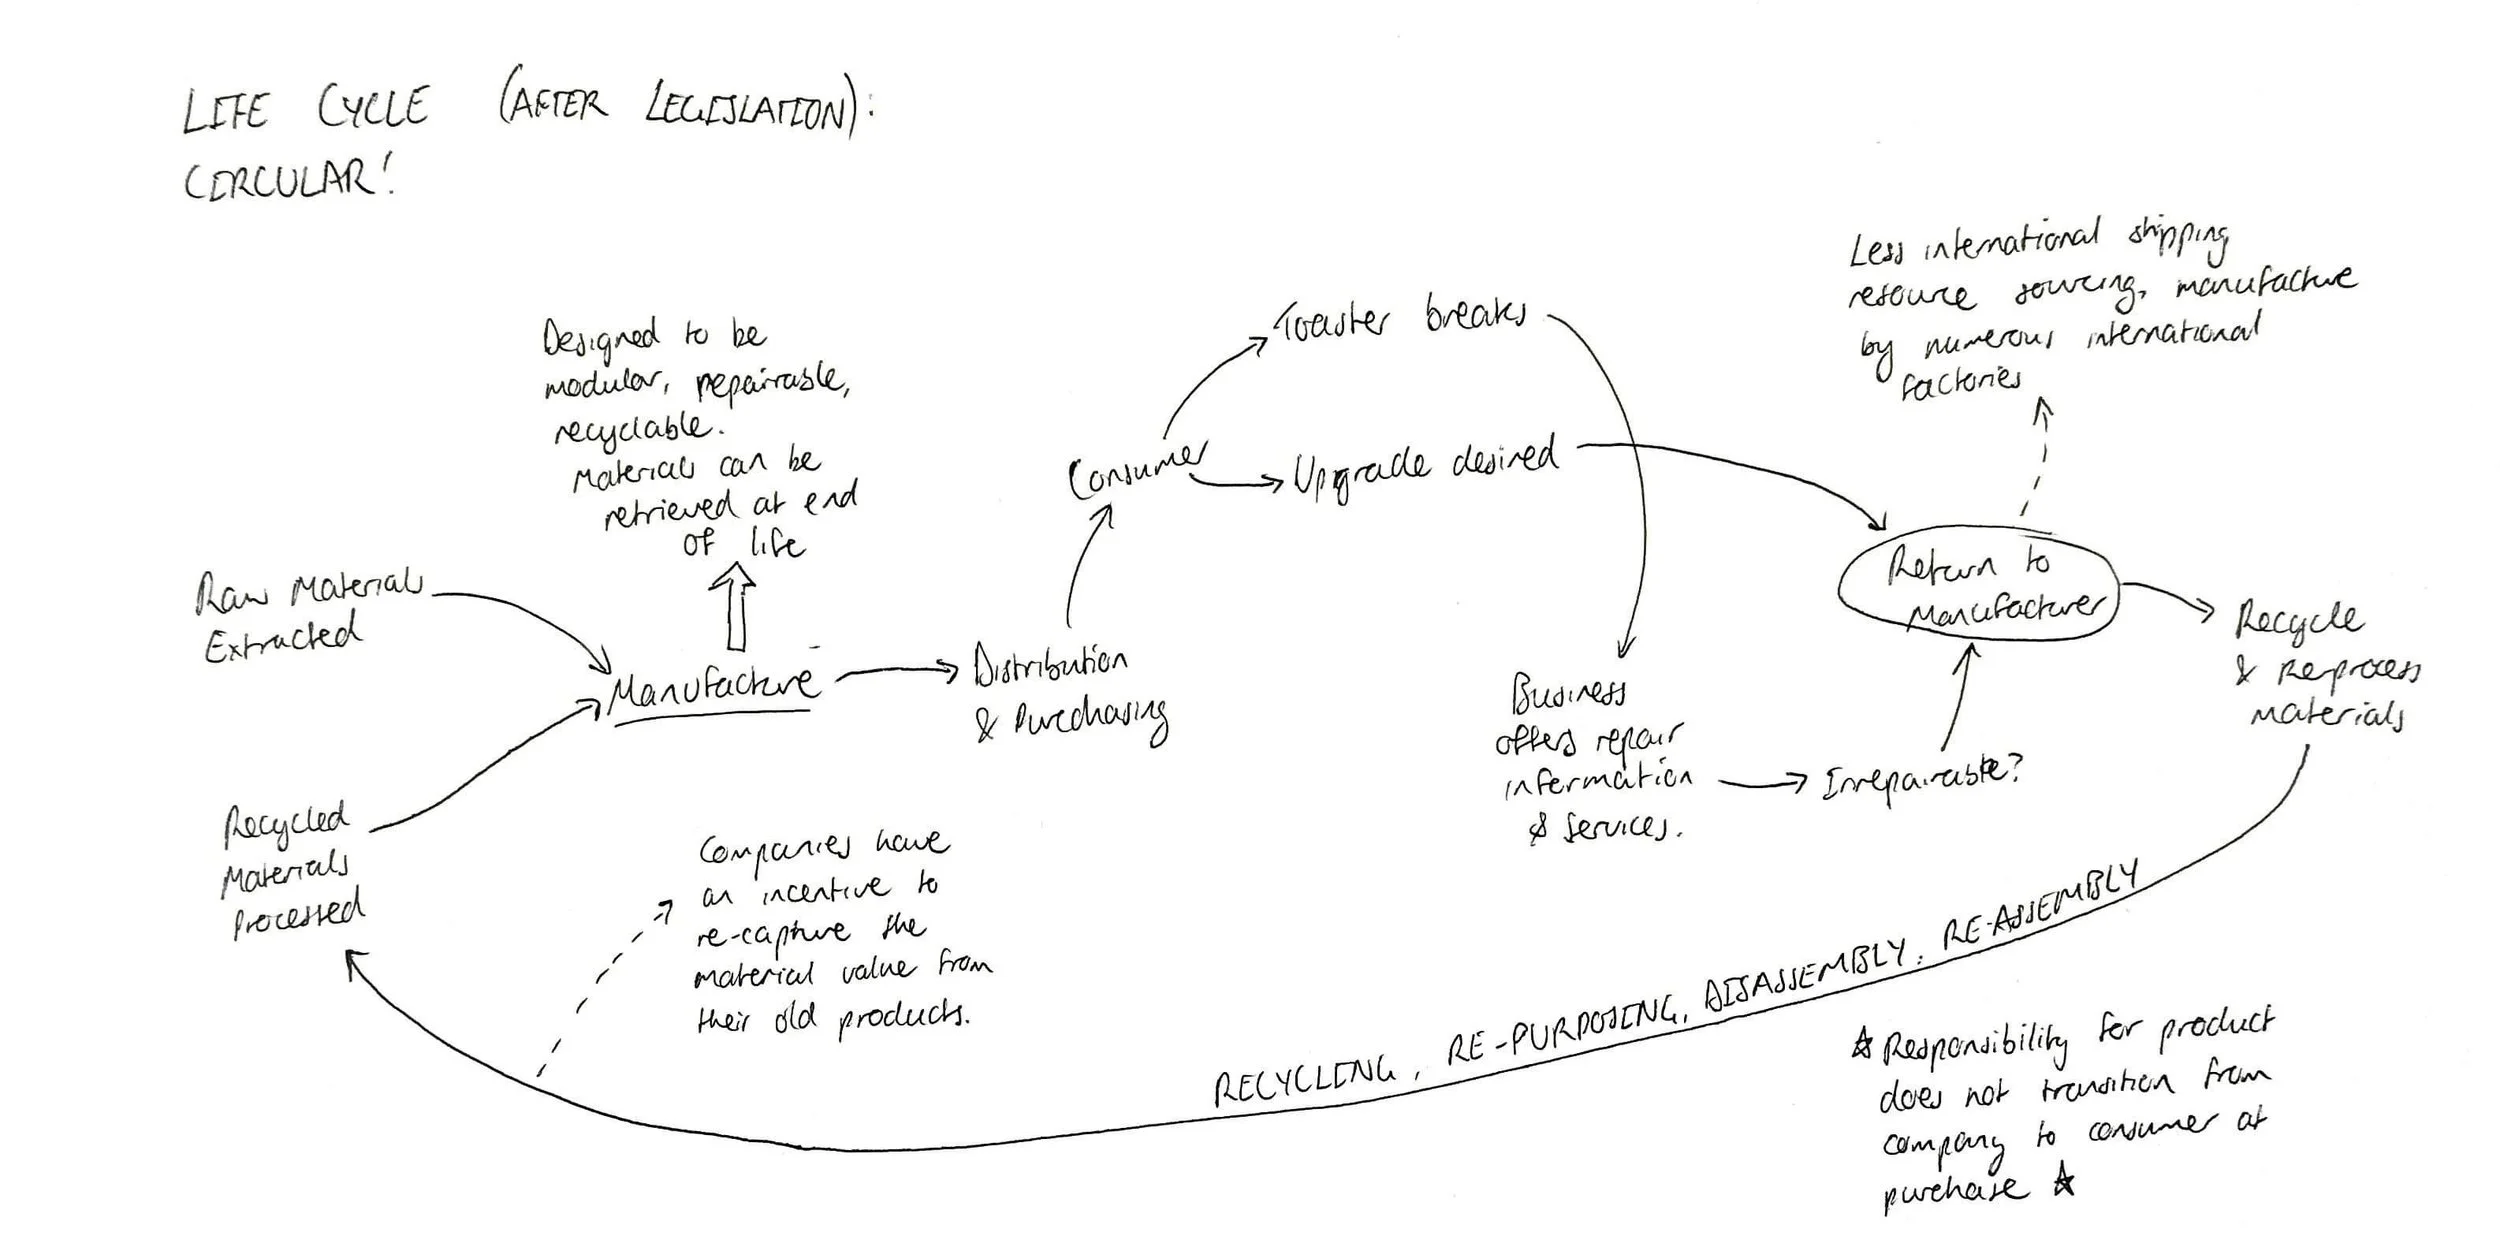 LIFE CYCLE (AFTER LEGISLATION):
CIRCULAR!
Designed to be
modular, repairable,
recyclable.
Materials can be
retrieved at end
of life
Raw Materials
Extracted
Manufacture
Distribution
& Purchasing
Consumer
Toaster breaks
Upgrade desired
Less international shipping
resource sourcing, manufacture
by numerous international
factories
Return to
Manufacturer
Recycle
& Re-process
Materials
Business
offers repair
information
& services.
Irrepairable?
Recycled
Materials
Processed
Companies have
an incentive to
re-capture the
material value from
their old products.
RECYCLING, RE-PURPOSING, DISASSEMBLY, RE-ASSEMBLY
☆ Responsibility for product
does not transition from
company to consumer at
purchase ☆